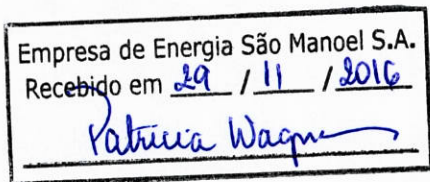 Empresa de Energia São Manoel S.A.
Recebido em 29 / 11 / 2016
Patricia Wagner